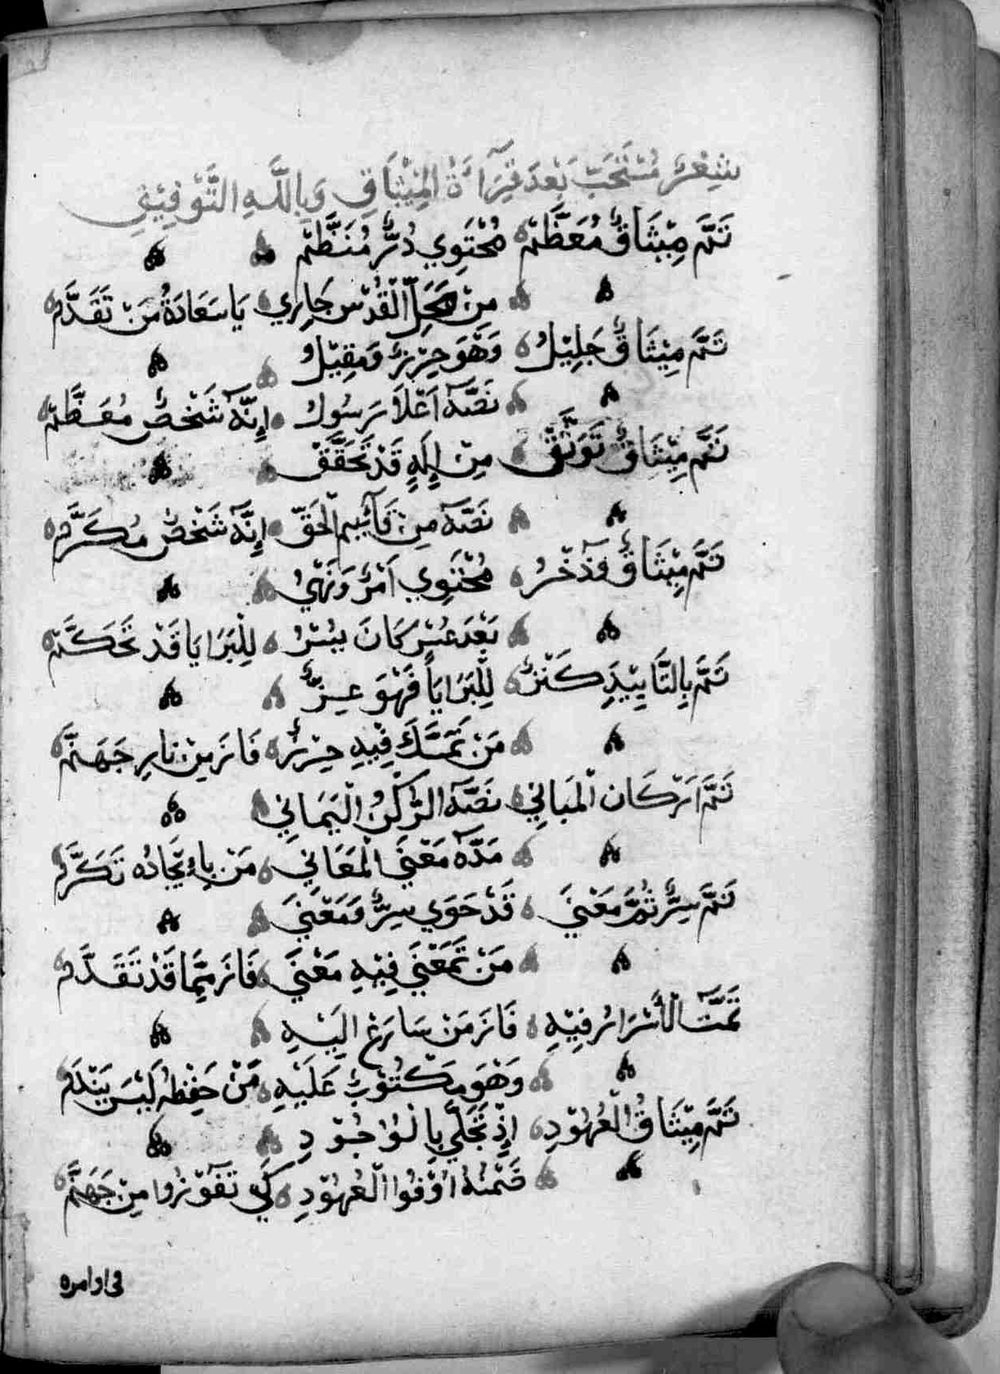 شِعْرٌ مُسْتَحَبٌّ بَعْدَ قِرَآءَةِ الْمِيْثَاقِ وَبِاللَّهِ التَّوْفِيْقِ
تَمَّ مِيْثَاقٌ مُعَظَّمْ مُحْتَوِي دُرٌّ مُنَظَّمْ
مِنْ مَحَلِّ الْقُدْسِ جَارِي يَا سَعَادَةُ مَنْ تَقَدَّمْ
تَمَّ مِيْثَاقٌ جَلِيْلُ وَهْوَ حِرْزٌ وَمَقِيْلُ
نَصَّهُ اَعْلَا رَسُولُ إِنَّهُ شَخْصٌ مُعَظَّمْ
تَمَّ مِيْثَاقٌ تَوَثَّقْ مِنْ إِلَهٍ قَدْ تَحَقَّقْ
نَصَّهُ مِنْ قَآئِيمِ الْحَقِّ إِنَّهُ شَخْصٌ مُكَرَّمْ
تَمَّ مِيْثَاقٌ وَذُخْرُ مُحْتَوِي اَمْرٌ وَنَهْيُ
بَعْدَ عُسْرٍ كَانَ يُسْرُ لِلْبَرَايَا قَدْ تَحَكَّمْ
تَمَّ بِالتَّايِيْدِ كَنْزٌ لِلْبَرَايَا فَهْوَ عِزٌّ
مَنْ تَمَسَّكَ فِيْهِ حِرْزٌ فَازَ مِنْ نَارِ جَهَنَّمْ
تَمَّ اَرْكَان الْمَبَانِي نَصَّهُ الرُّكْنُ الْيَمَانِي
مَدَّهُ مَعْنَى الْمَعَانِي مَنْ بِايْجَادُه تَكَرَّمْ
تَمَّ سِرٌّ ثُمَّ مَعْنَى قَدْ حَوَى سِرٌّ وَمَعْنَى
مَنْ تَمَعْنَى فِيْهِ مَعْنَى فَازَ مِمَّا قَدْ تَقَدَّمْ
تَمَّتْ الْأَسْرَارُ فِيْهِ فَازَ مَنْ سَارَعْ الَيْهِ
وَهْوَ مَكْتُوْبٌ عَلَيْهِ مَنْ حَفِظَهُ لَيْسَ يَنْدَمْ
تَمَّ مِيْثَاقُ الْعُهُوْدِ إِذْ تَجَلَّى بِالْوُجُوْدِ
ضَمْنُهُ اوْفُوا الْعُهُوْدِ كَي تَفُوْزُوا مِنْ جَهَنَّمْ
في اوامره